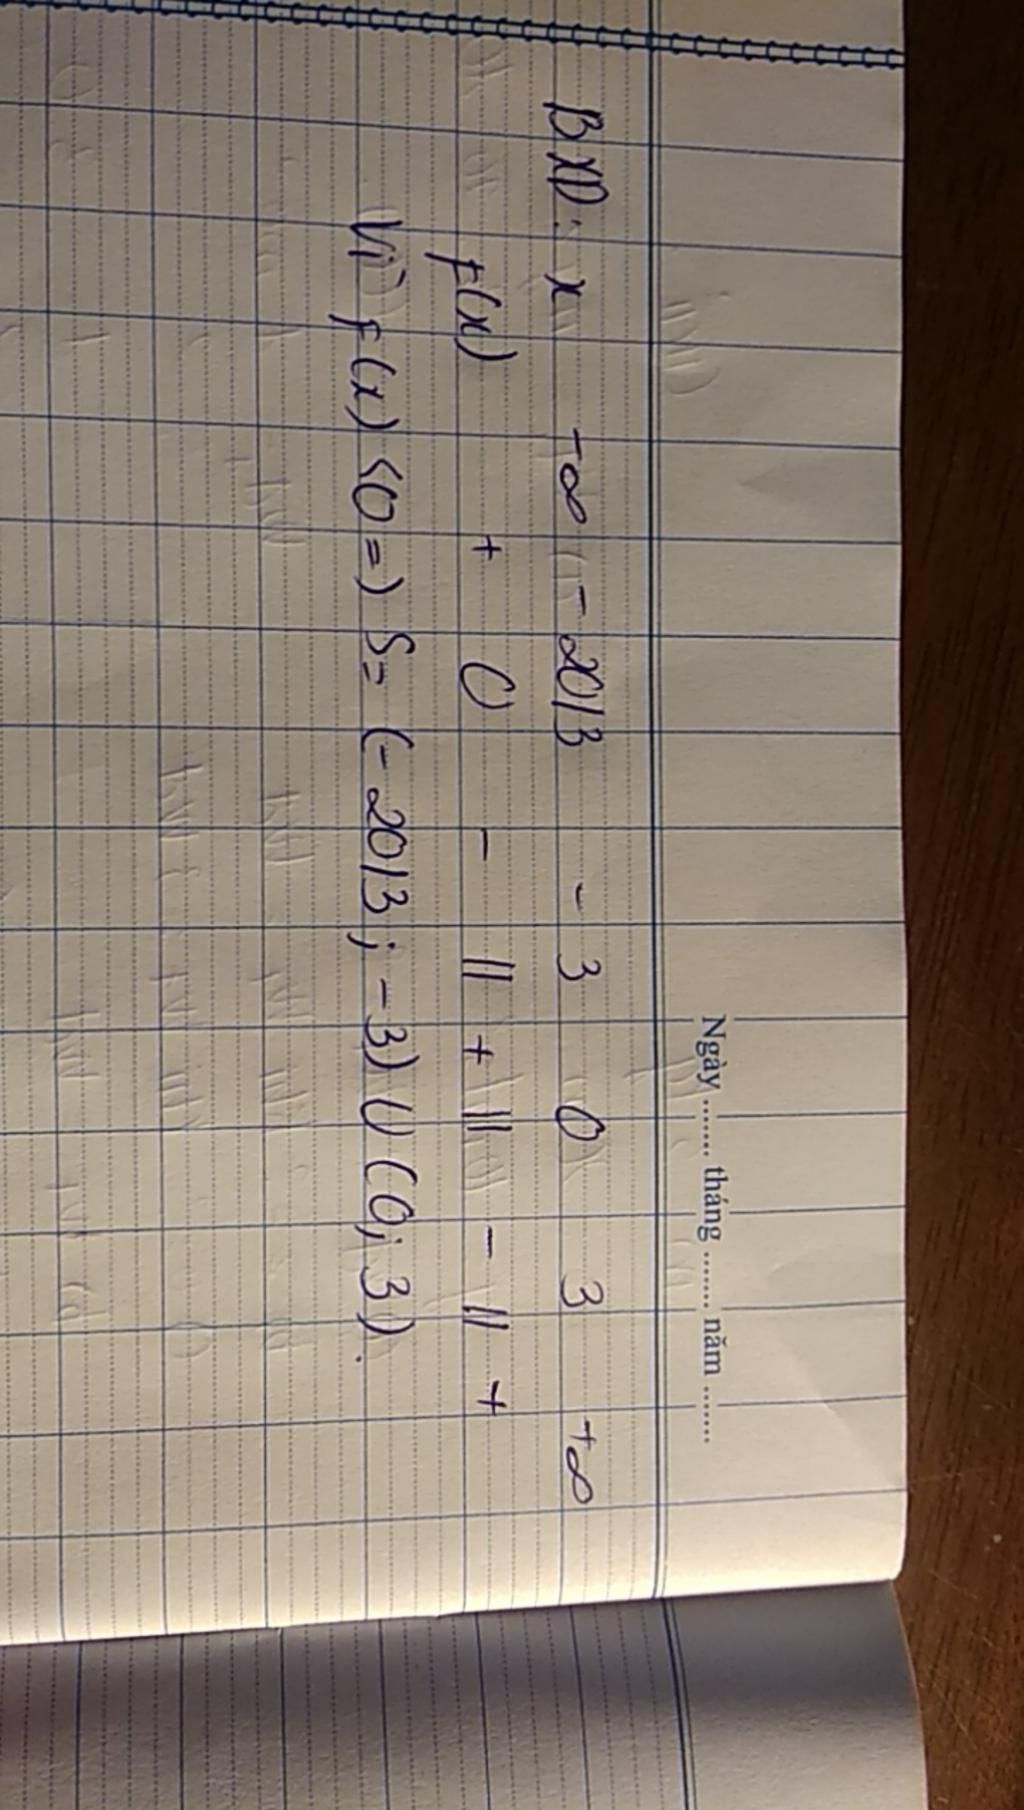 Ngày ........ tháng ........ năm ........
BXD: x -∞ -2013 -3 0 3 +∞
f(x) + 0 - || + || - || +
Vì f(x) <0 => S= (-2013; -3) U (0; 3).